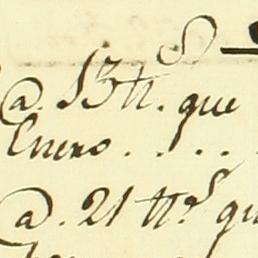 @. 13 tt.s que
Enero . . . .
@. 21 tt.s qu